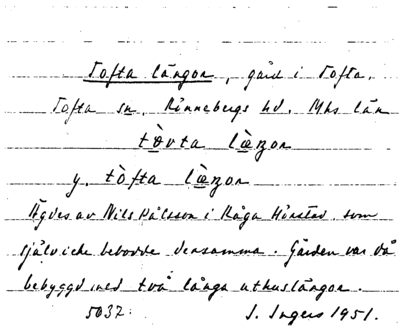 Tofta längor, gård i Tofta.
Tofta sn. Rönnebergs hd. Mhs län
tòvta læ̀ŋor
y. tòfta læ̀ŋor
Ägdes av Nils Pålsson i Råga Hörstad, som
själv icke bebodde densamma. Gården var då
bebyggd med två långa uthuslängor.
5032. I. Ingers 1951.